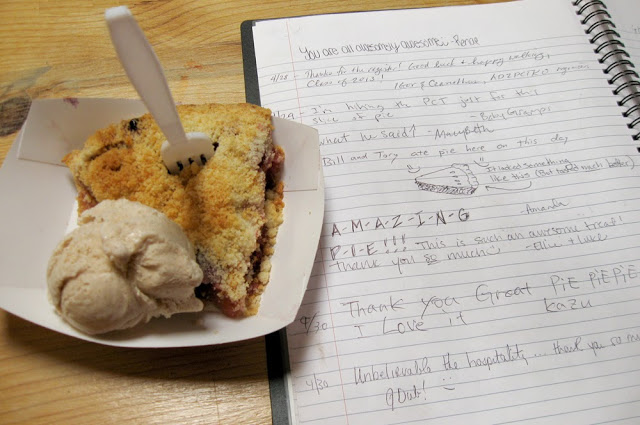 You are all awesomely awesome! -
4/28 Thanks for the respite! Good luck & happy walking,
Class of 2013!
I'm hiking the PCT just for this
slice of pie
what he said! -
Bill and Tory ate pie here on this day
It looked something
like this (But tasted much better)
A-M-A-Z-I-N-G -Amanda
P-I-E!!! This is such an awesome treat!
Thank you so much! - Ellie + Luke
4/30 Thank you Great PiE PiE PiE
I Love it Kazu
4/30 Unbelievable the hospitality... thank you so